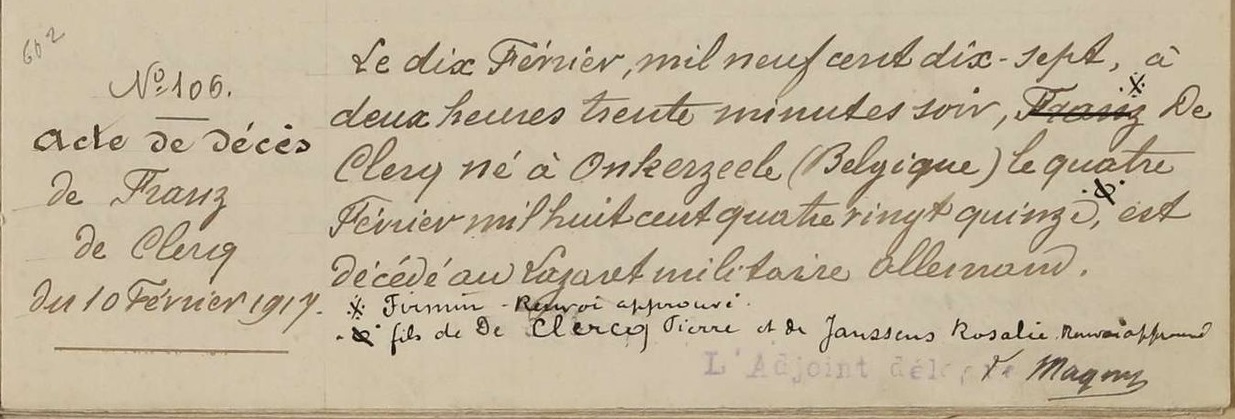 602
Nº 106.
Acte de décès
de Franz
de Clerq
du 10 Février 1917.
Le dix Février, mil neuf cent dix-sept, à
deux heures trente minutes soir, Franz ※ De
Clerq né à Onkerzeele (Belgique) le quatre
Février mil huit cent quatre vingt quinze, est
décédé au Lazaret militaire allemand.
※ Firmin - Renvoi approuvé.
fils de De Clercq Pierre et de Janssens Rosalie. Renvoi approuvé
L'Adjoint délégué